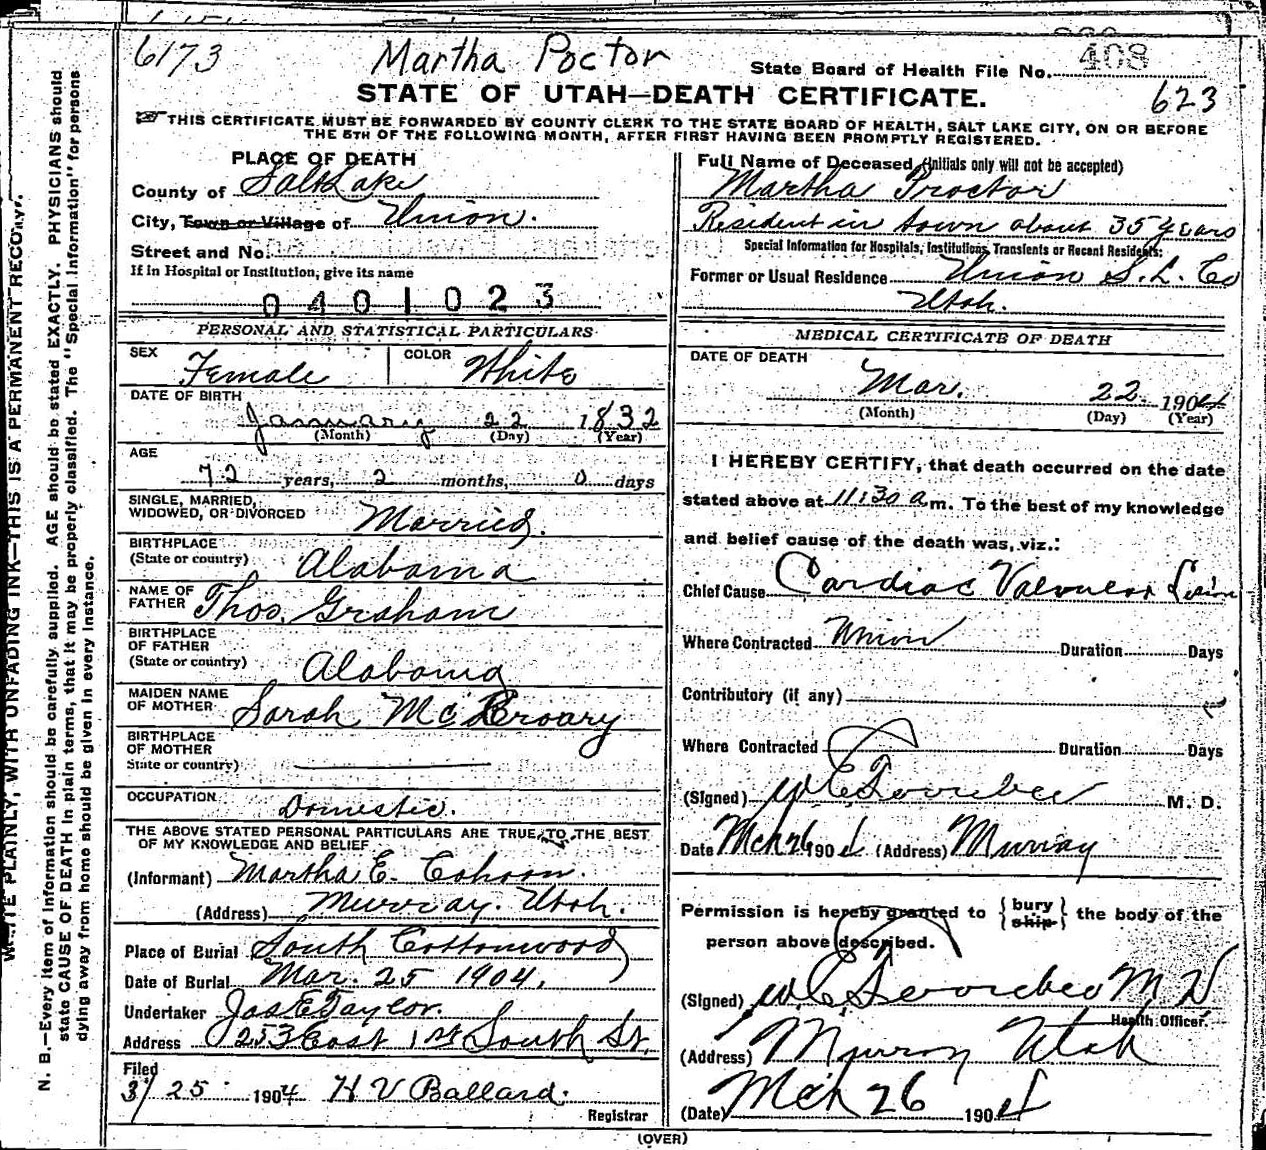 6173
Martha Poctor
State Board of Health File No. 408
STATE OF UTAH—DEATH CERTIFICATE.
623
THIS CERTIFICATE MUST BE FORWARDED BY COUNTY CLERK TO THE STATE BOARD OF HEALTH, SALT LAKE CITY, ON OR BEFORE
THE 5TH OF THE FOLLOWING MONTH, AFTER FIRST HAVING BEEN PROMPTLY REGISTERED.
PLACE OF DEATH
County of Salt Lake
City, Town or Village of Union.
Street and No.
If in Hospital or Institution, give its name
0401023
PERSONAL AND STATISTICAL PARTICULARS
SEX Female COLOR White
DATE OF BIRTH
January 22 1832
(Month) (Day) (Year)
AGE
72 years, 2 months, 0 days
SINGLE, MARRIED,
WIDOWED, OR DIVORCED Married.
BIRTHPLACE
(State or country) Alabama
NAME OF
FATHER Thos. Graham
BIRTHPLACE
OF FATHER
(State or country) Alabama
MAIDEN NAME
OF MOTHER Sarah
BIRTHPLACE
OF MOTHER
State or country)
OCCUPATION Domestic.
THE ABOVE STATED PERSONAL PARTICULARS ARE TRUE TO THE BEST
OF MY KNOWLEDGE AND BELIEF
(Informant) Martha E. Cahoon.
(Address) Murray. Utah.
Place of Burial South Cottonwood
Date of Burial Mar. 25 1904.
Undertaker Jas E Taylor.
Address 253 East 1st South St.
Filed
3/25 1904 H V Ballard.
Registrar
Full Name of Deceased (Initials only will not be accepted)
Martha Proctor
Resident in town about 35 years
Special Information for Hospitals, Institutions, Transients or Recent Residents:
Former or Usual Residence Union S. L. Co
Utah.
MEDICAL CERTIFICATE OF DEATH
DATE OF DEATH
Mar. 22 1904
(Month) (Day) (Year)
I HEREBY CERTIFY, that death occurred on the date
stated above at 11:30 a m. To the best of my knowledge
and belief cause of the death was, viz.:
Chief Cause Cardiac Valvular Lesion
Where Contracted Union Duration Days
Contributory (if any)
Where Contracted Duration Days
(Signed) M. D.
Date Mch 26 1904 (Address) Murray
Permission is hereby granted to { bury ship } the body of the
person above described.
(Signed) M D
Health Officer.
(Address) Murray Utah
(Date) Mch 26 1904
(OVER)
WRITE PLAINLY, WITH UNFADING INK—THIS IS A PERMANENT RECORD.
N. B.—Every item of information should be carefully supplied. AGE should be stated EXACTLY. PHYSICIANS should
state CAUSE OF DEATH in plain terms, that it may be properly classified. The "Special Information" for persons
dying away from home should be given in every instance.